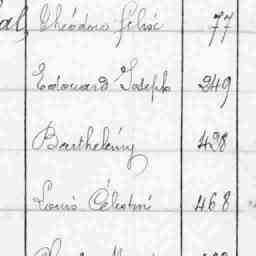 Théodore Félix 77
Edouard Joseph 249
Barthelémy 428
Louis Célestin 468